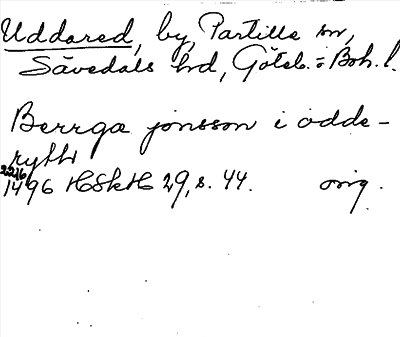 Uddared, by, Partille sn,
Sävedals hd, Göteb. o Boh. l.
Berrge jonsson i odde-
rythi
22/6
1496 HSkH 29, s. 44. orig.